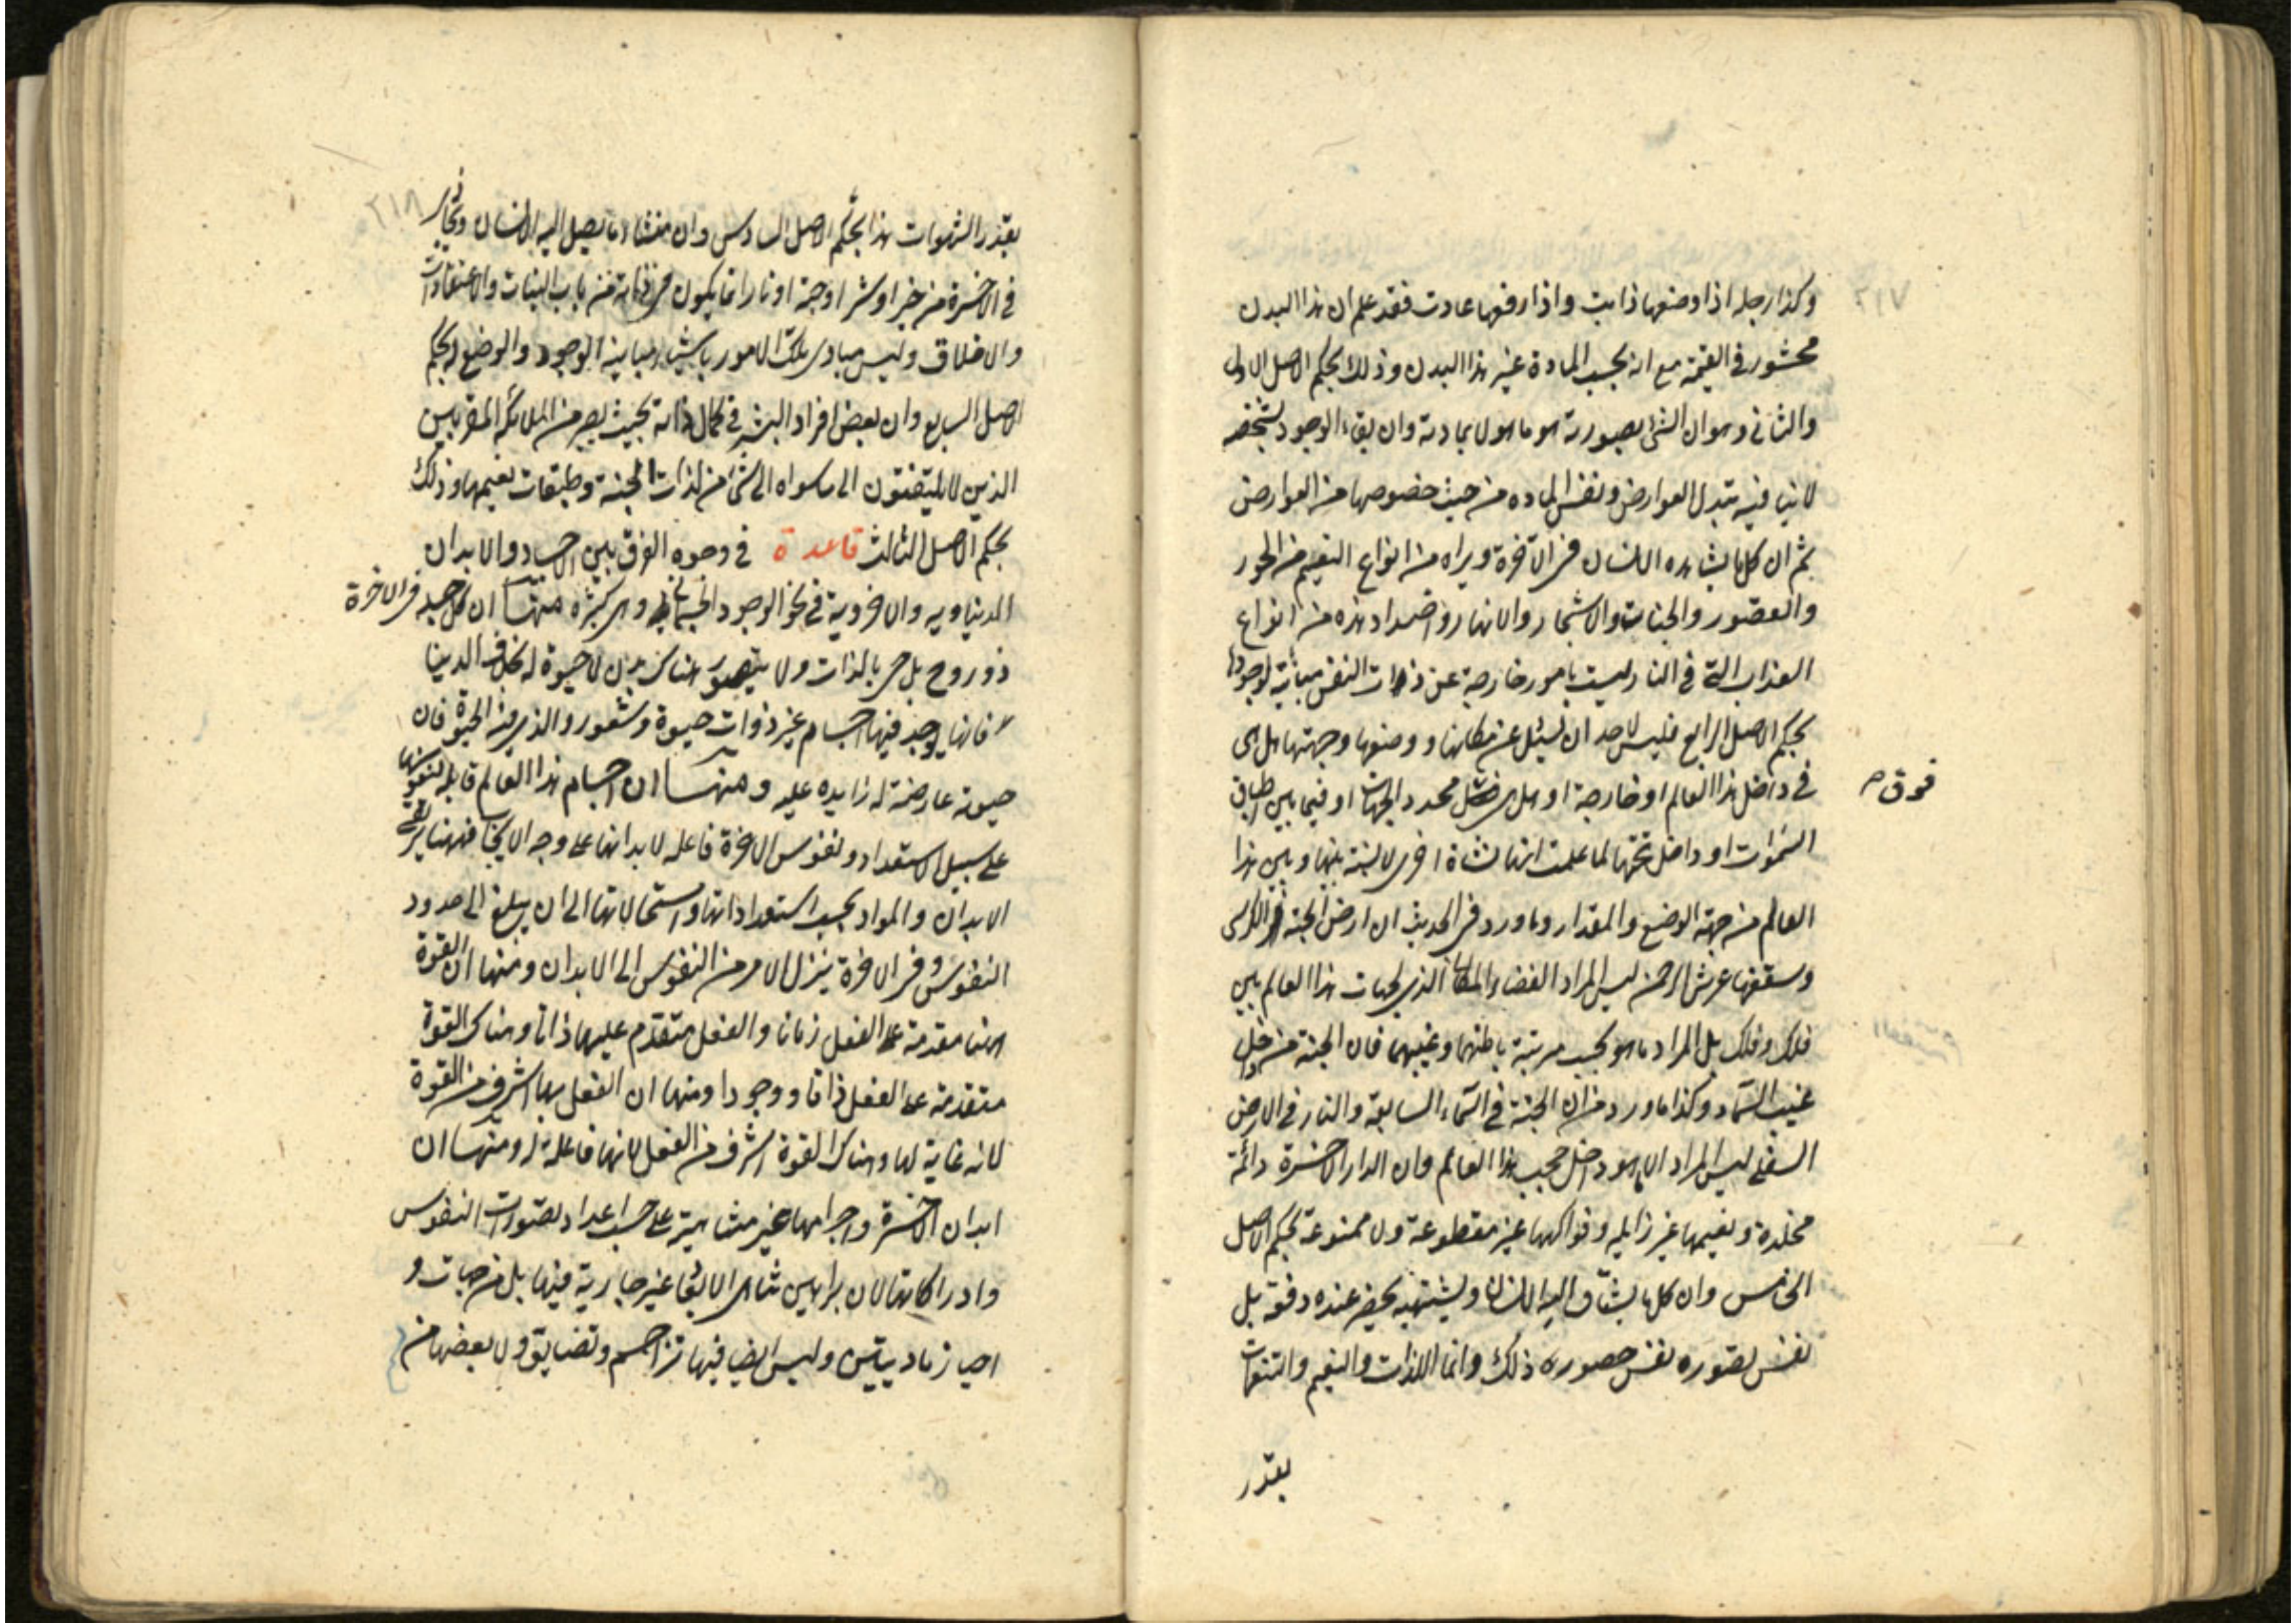 ٢١٧
وكذا رجله اذا وضعها ذابت واذا رفعها عادت فقد علم ان هذا البدن
محشور في القيمة مع انه بحسب المادة غير هذا البدن وذلك بحكم الاصل الاول
والثاني وهو ان الشئ بصورته هو ما هو لا بمادته وان بقاء الوجود بشخصه
لا ينافيه تبدل العوارض ونفس الماده من حيث خصوصها من العوارض
ثم ان كل ما يشاهده الانسان في الآخرة ويراه من انواع النعيم من الحور
والقصور والجنات والاشجار والانهار واضداد هذه من انواع
العذاب التي في النار ليست بامور خارجة عن ذات النفس مباينة لوجودها
بحكم الاصل الرابع فليس لاحد ان يسئل عن مكانها ووضعها وجهتها هل هى
في داخل هذا العالم او خارجة او هل هى محدد الجهات او فيما بين اطباق
فوق
السموات او داخل تحتها لما علمت انها نشاة اخرى لا نسبة بينها وبين هذا
العالم من جهة الوضع والمقدار وما ورد في الحديث ان ارض الجنة الكرسى
وسقفها عرش الرحمن ليس المراد الفضاء المكانى الذى لجهات هذا العالم بين
فلك وفلك بل المراد ما هو بحسب مرتبة باطنهما وغيبهما فان الجنة من داخل
غيب السماء وكذا ما ورد من ان الجنة في السماء السابعة والنار في الارض
السفلى ليس المراد الا ما هو داخل حجب هذا العالم وان الدار الاخرة دائمة
مخلدة ونعيمها غير زايله وفواكهها غير مقطوعة ولا ممنوعة بحكم الاصل
الخامس وان كل ما يشتاق اليه الانسان ويشتهيه يحضر عنده دفعة بل
نفس تصوره نفس حضوره ذلك وانما اللذات والنعيم والتنعمات
بقدر
٢١٨
بقدر الشهوات هذا بحكم الاصل السادس وان منشاء ما يصل اليه الانسان ويجازى
في الاخرة من خير او شر او جنة او نار انما يكون في ذاته من باب النيات والاعتقادات
والاخلاق وليس مبادى تلك الامور باشياء مباينة الوجود والوضع له بحكم
اصل السابع وان بعض افراد البشر في كمال ذاته بحيث يصير من الملائكة المقربين
الذين لا يلتفتون الى ما سواه الى شئ من لذات الجنة وطبقات نعيمها وذلك
بحكم الاصل الثالث قاعدة في وجوه الفرق بين الاجساد والابدان
الدنياويه والاخروية في نحو الوجود الجسمانى وهى كثيره منها ان كل جسد في الاخرة
ذو روح بل حى بالذات ولا يتصور هناك بدن لا حيوة له بخلاف الدنيا
فانها يوجد فيها اجسام غير ذوات حيوة وشعور والذى فيه الحيوة فان
حيوته عارضة له زايده عليه ومنها ان اجسام هذا العالم قابله لنفوسها
على سبيل الاستعداد ونفوس الاخرة فاعله لابدانها على وجه الايجاب فههنا يرتقى
الابدان والمواد بحسب استعداداتها واستحالاتها الى ان يبلغ الى حدود
النفوس وفى الاخرة ينزل الامر من النفوس الى الابدان ومنها ان القوة
ههنا مقدمة على الفعل زمانا والفعل متقدم عليها ذاتا وهناك القوة
متقدمة على الفعل ذاتا ووجودا ومنها ان الفعل ههنا اشرف من القوة
لانه غاية لها وهناك القوة اشرف من الفعل لانها فاعلة له ومنها ان
ابدان الاخرة واجرامها غير متناهية على حسب اعداد تصورات النفوس
وادراكاتها لان براهين تناهى الابعاد غير جارية فيها بل في جهات و
احياز ماديتين وليس ايضا فيها تزاحم وتضايق ولا بعضها من